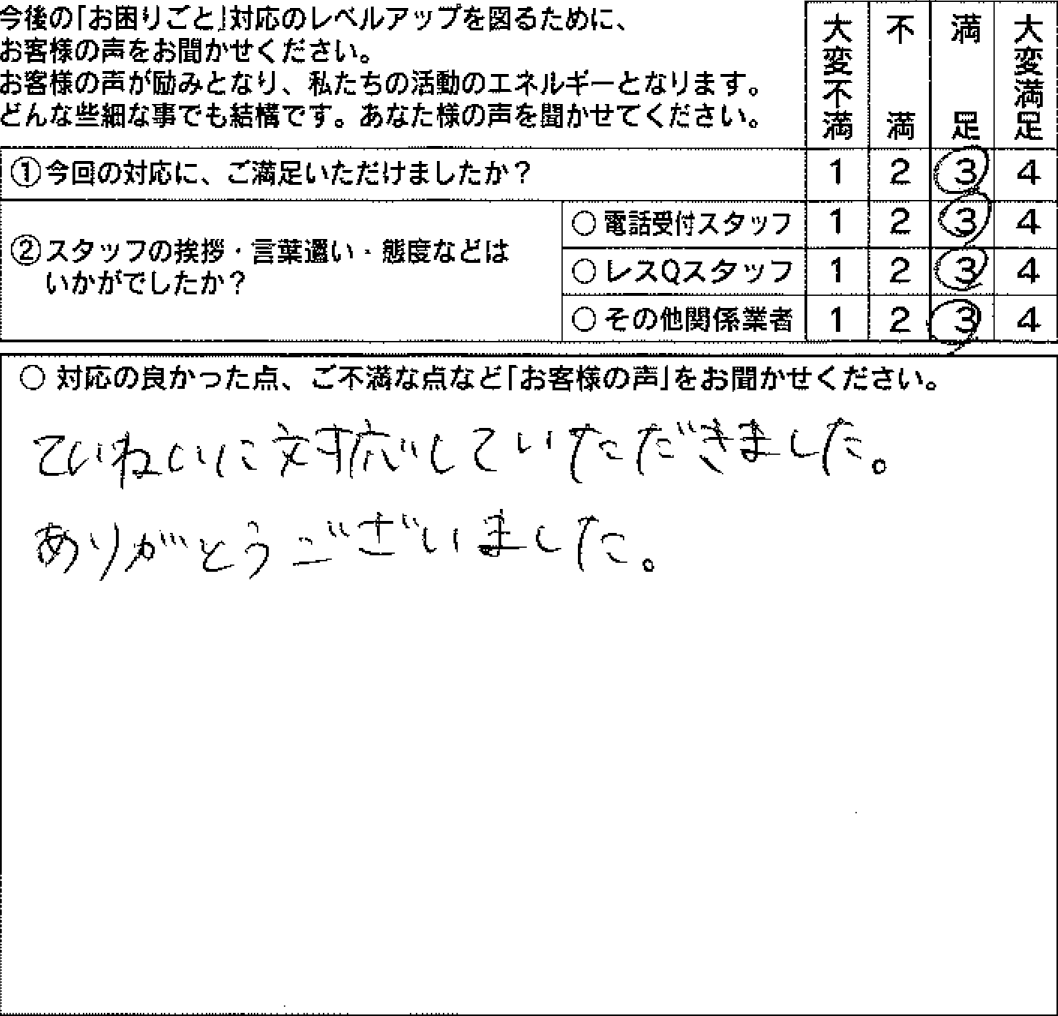 今後の「お困りごと」対応のレベルアップを図るために、
お客様の声をお聞かせください。
お客様の声が励みとなり、私たちの活動のエネルギーとなります。
どんな些細な事でも結構です。あなた様の声を聞かせてください。
大変不満 不満 満足 大変満足
①今回の対応に、ご満足いただけましたか? 1 2 3 4
②スタッフの挨拶・言葉遣い・態度などは
いかがでしたか?
○電話受付スタッフ 1 2 3 4
○レスQスタッフ 1 2 3 4
○その他関係業者 1 2 3 4
○ 対応の良かった点、ご不満な点など「お客様の声」をお聞かせください。
ていねいに対応していただきました。
ありがとうございました。